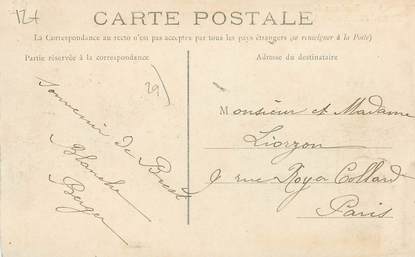 CARTE POSTALE
La Correspondance au recto n'est pas acceptée par tous les pays étrangers (se renseigner à la Poste)
Partie réservée à la correspondance
Adresse du destinataire
29
Souvenir de Brest
Blanche
Berger
Monsieur et Madame
Liorzon
9 rue Royer Collard
Paris